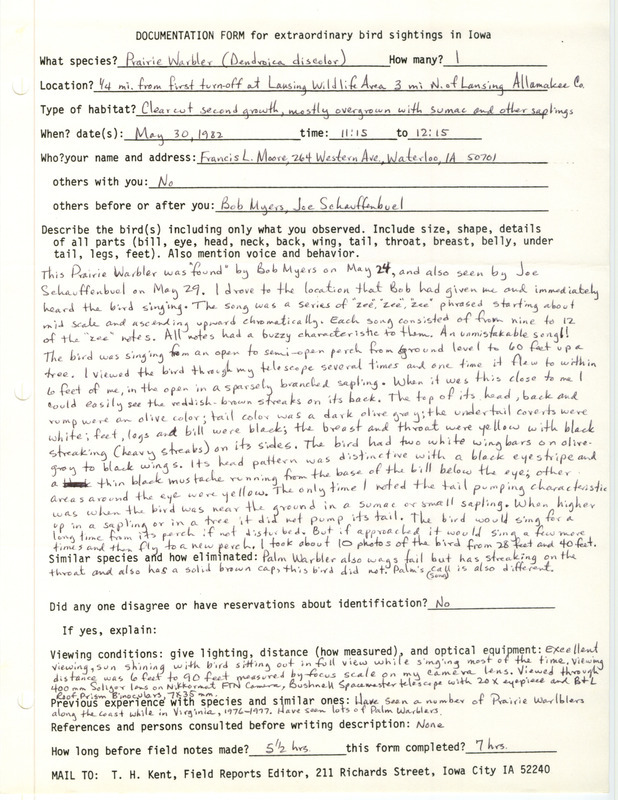 DOCUMENTATION FORM for extraordinary bird sightings in Iowa
What species? Prairie Warbler (Dendroica discolor) How many? 1
Location? 1/4 mi. from first turnoff at Lansing Wildlife Area 3 mi N. of Lansing Allamakee Co.
Type of habitat? Clearcut second growth, mostly overgrown with sumac and other saplings
When? date(s): May 30, 1982 time: 11:15 to 12:15
Who?your name and address: Francis L. Moore, 264 Western Ave, Waterloo, IA 50701
others with you: No
others before or after you: Bob Myers, Joe Schauffenbuel
Describe the bird(s) including only what you observed. Include size, shape, details
of all parts (bill, eye, head, neck, back, wing, tail, throat, breast, belly, under
tail, legs, feet). Also mention voice and behavior.
This Prairie Warbler was "found" by Bob Myers on May 24, and also seen by Joe
Schauffenbuel on May 29. I drove to the location that Bob had given me and immediately
heard the bird singing. The song was a series of "zee, "zee", zee" phrased starting about
mid scale and ascending upward chromatically. Each song consisted of from nine to 12
of the "zee" notes. All notes had a buzzy characteristic to them. An unmistakable song!!
The bird was singing from an open to semi-open perch from ground level to 60 feet up a
tree. I viewed the bird through my telescope several times and one time it flew to within
6 feet of me, in the open in a sparsely branched sapling. When it was this close to me I
could easily see the reddish-brown streaks on its back. The top of its head, back and
rump were an olive color; tail color was a dark olive gray; the undertail coverts were
white; feet, legs and bill were black; the breast and throat were yellow with black
streaking (heavy streaks) on its sides. The bird had two white wingbars on olive-
gray to black wings. Its head pattern was distinctive with a black eyestripe and
a thin black mustache running from the base of the bill below the eye; other
areas around the eye were yellow. The only time I noted the tail pumping characteristic
was when the bird was near the ground in a sumac or small sapling. When higher
up in a sapling or in a tree it did not pump its tail. The bird would sing for a
long time from its perch if not disturbed. But if approached it would sing a few more
times and then fly to a new perch. I took about 10 photos of the bird from 28 feet and 40 feet.
Similar species and how eliminated: Palm Warbler also wags tail but has streaking on the
throat and also has a solid brown cap, this bird did not. Palm's call (song) is also different.
Did any one disagree or have reservations about identification? No
If yes, explain:
Viewing conditions: give lighting, distance (how measured), and optical equipment: Excellent
viewing, sun shining with bird sitting out in full view while singing most of the time. Viewing
distance was 6 feet to 90 feet measured by focus scale on my camera lens. Viewed through
400 mm Soligor lens on Nikkormat FTN Camera, Bushnell Spacemaster telescope with 20x eyepiece and B&L
Roof Prism Binoculars, 7x35 mm.
Previous experience with species and similar ones: Have seen a number of Prairie Warlblers
along the coast while in Virginia, 1976-1977. Have seen lots of Palm Warblers.
References and persons consulted before writing description: None
How long before field notes made? 5 1/2 hrs. this form completed? 7 hrs.
MAIL TO: T. H. Kent, Field Reports Editor, 211 Richards Street, Iowa City IA 52240